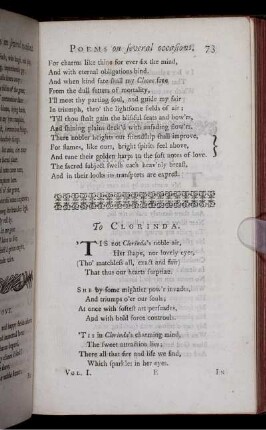 POEMS on several occasions. 73
For charms like thine for ever fix the mind,
And with eternal obligations bind.
And when kind fate shall my Cleone free
From the dull fetters of mortality,
I'll meet thy parting soul, and guide my fair
In triumph, thro' the lightsome fields of air:
'Till thou shalt gain the blissful seats and bow'rs,
And shining plains deck'd with unfading flow'rs.
There nobler heights our friendship shall improve,
For flames, like ours, bright spirits feel above,
And tune their golden harps to the soft notes of love.
The sacred subject swells each heav'nly breast,
And in their looks its transports are exprest.
To CLORINDA.
'TIS not Clorinda's noble air,
Her shape, nor lovely eyes,
(Tho' matchless all, exact and fair)
That thus our hearts surprize.
SHE by some mightier pow'r invades,
And triumps o'er our souls;
At once with softest art persuades,
And with bold force controuls.
'TIS in Clorinda's charming mind,
The sweet attraction lies;
There all that fire and life we find,
Which sparkles in her eyes.
VOL. I. E IN